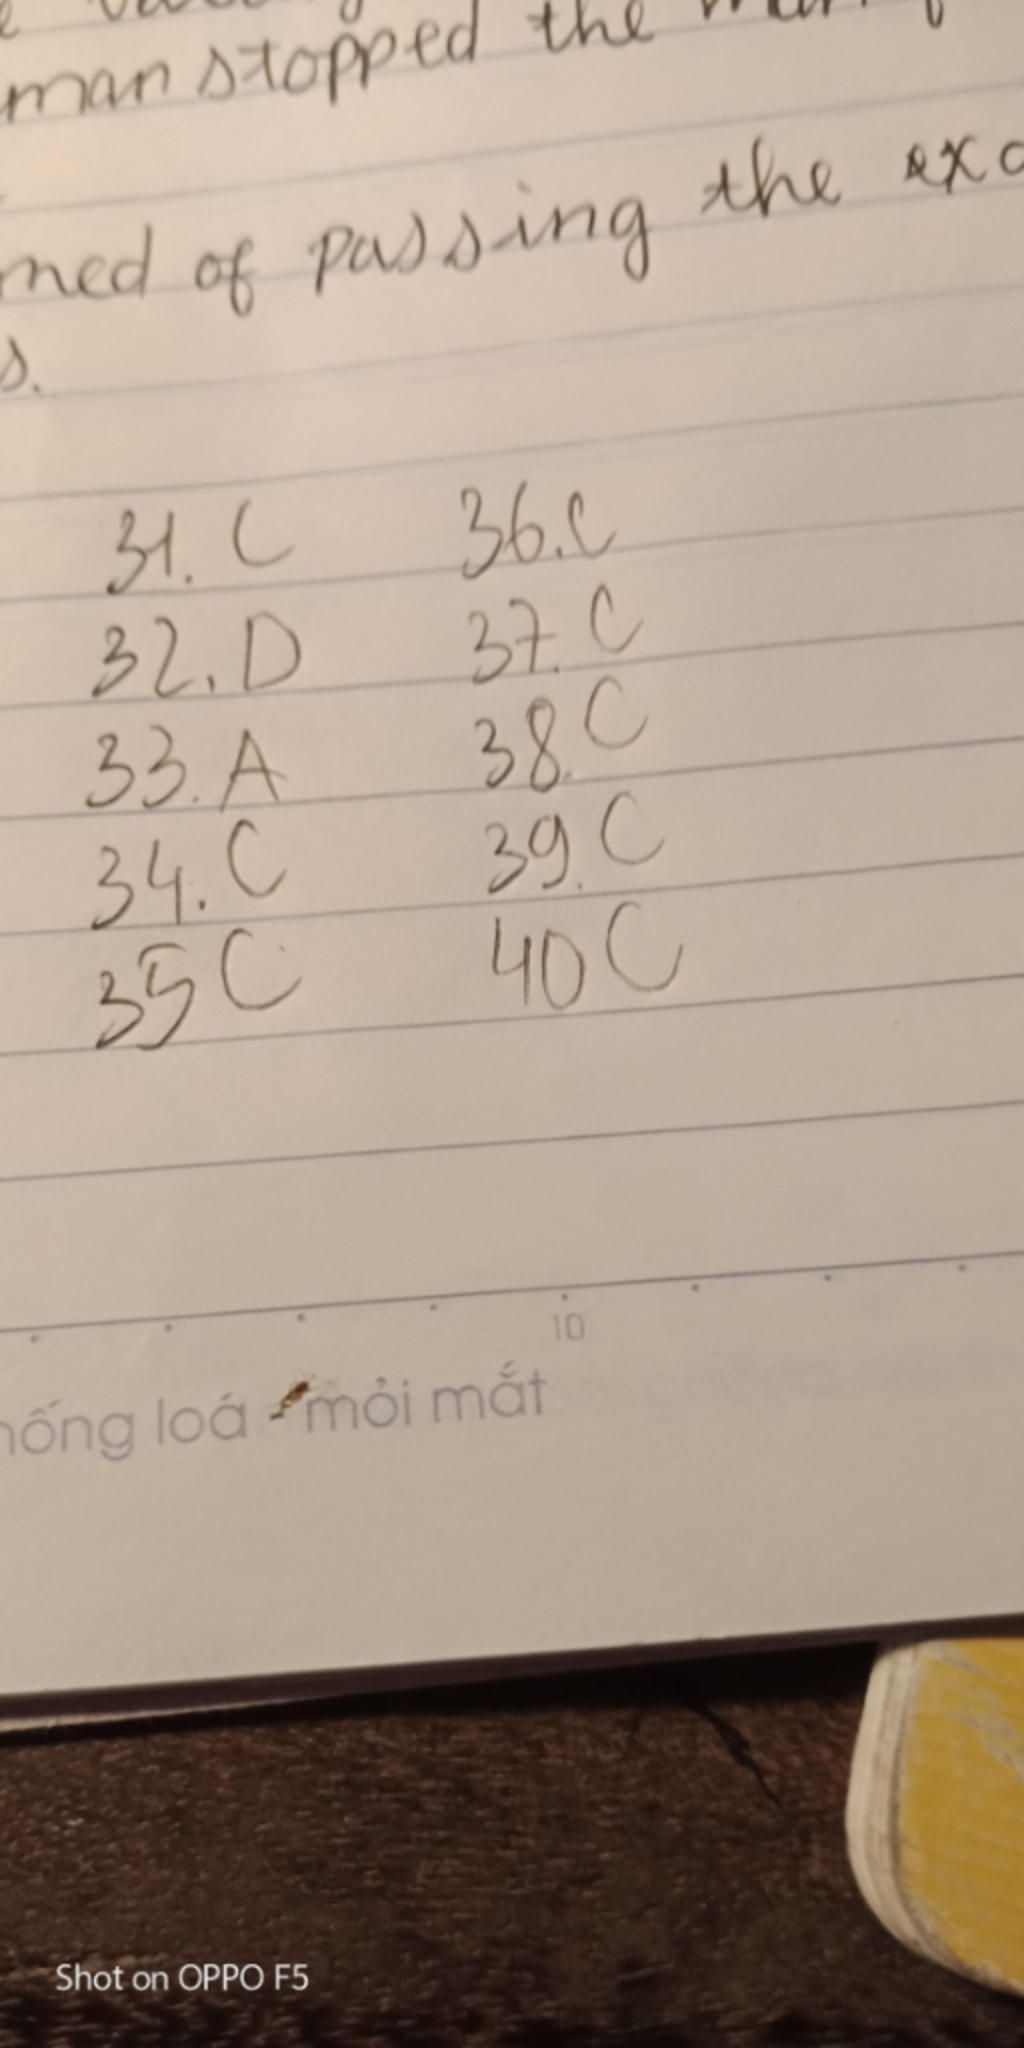 man stopped the
of passing the
s.
31. C 36. C
32. D 37. C
33. A 38. C
34. C 39. C
35 C 40 C
10
loá mỏi mắt
Shot on OPPO F5